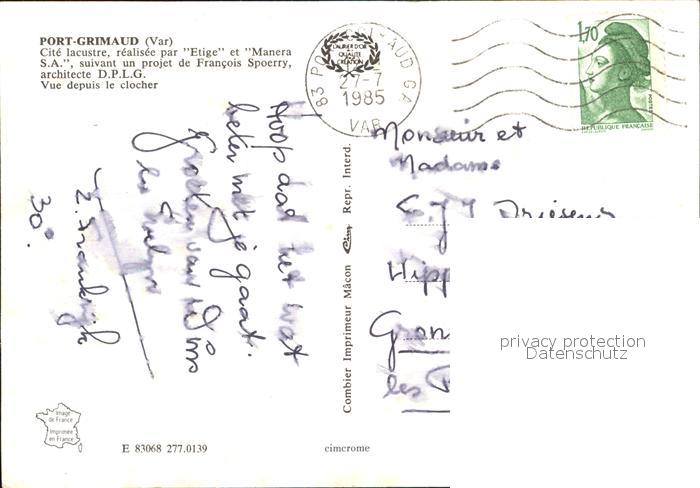 PORT-GRIMAUD (Var)
Cité lacustre, réalisée par "Etige" et "Manera
S.A.", suivant un projet de François Spoerry,
architecte D.P.L.G.
Vue depuis le clocher
LAURIER D'OR
DE LA
QUALITÉ
CRÉATION
83 PORT GRIMAUD CA
27-7
1985
VAR
1,70
POSTES
REPUBLIQUE FRANÇAISE
Hoop dat het wat
beter met je gaat.
Groeten van Wims
en Evelyn
Z. Frankrijk
30°.
Combier Imprimeur Mâcon Cim Repr. Interd.
Monsieur et
Madame
Hipp
Gron
les
privacy protection
Datenschutz
Image
de France
Imprimée
en France
E 83068 277.0139
cimcrome